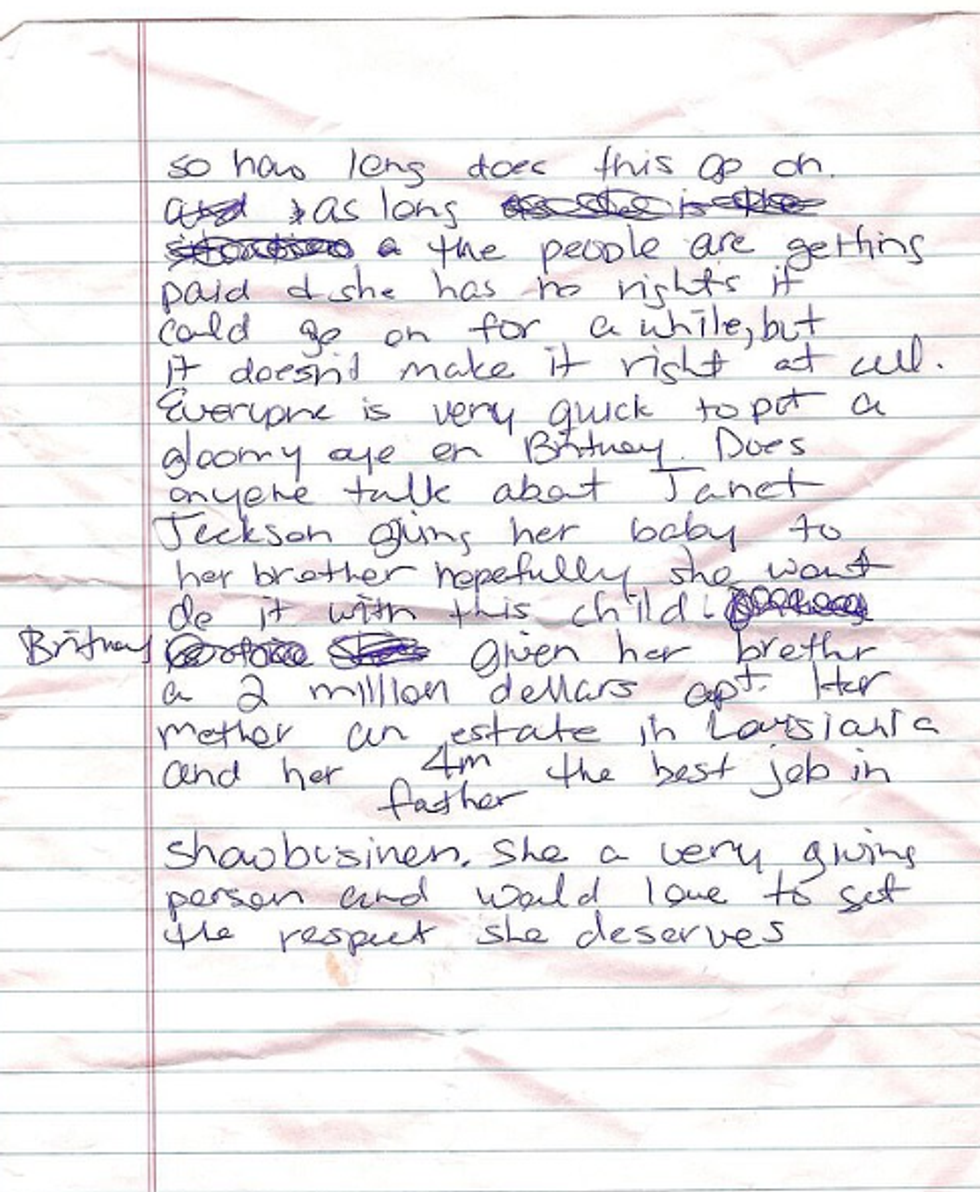 so how long does this go on.
and as long
a the people are getting
paid & she has no rights it
could go on for a while, but
it doesn't make it right at all.
Everyone is very quick to put a
gloomy aye on Britney. Does
anyone talk about Janet
Jeckson giving her baby to
her brother hopefully she wont
do it with this child.
Britney given her brother
a 2 million dollars apt. Her
mother an estate in Louisiana
and her 4m the best job in
father
showbusinen. She a very giving
person and would love to get
the respect she deserves